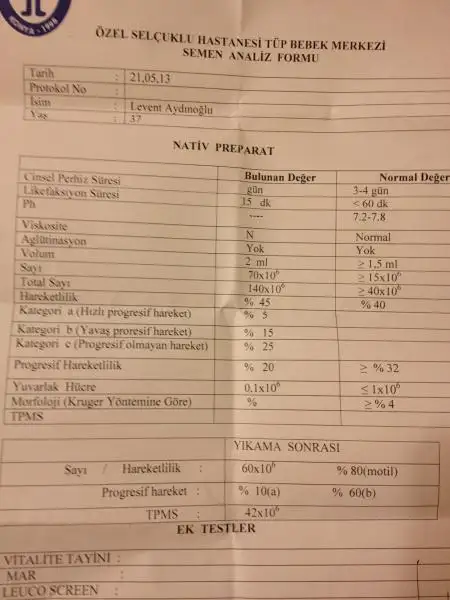 KONYA - 1998
ÖZEL SELÇUKLU HASTANESİ TÜP BEBEK MERKEZİ
SEMEN ANALİZ FORMU
Tarih : 21,05,13
Protokol No :
İsim : Levent Aydınoğlu
Yaş : 37
NATİV PREPARAT
Bulunan Değer Normal Değer
Cinsel Perhiz Süresi gün 3-4 gün
Likefaksiyon Süresi 15 dk < 60 dk
Ph ---- 7.2-7.8
Viskosite N Normal
Aglütinasyon Yok Yok
Volum 2 ml ≥ 1,5 ml
Sayı 70x10⁶ ≥ 15x10⁶
Total Sayı 140x10⁶ ≥ 40x10⁶
Hareketlilik % 45 % 40
Kategori a (Hızlı progresif hareket) % 5
Kategori b (Yavaş proresif hareket) % 15
Kategori c (Progresif olmayan hareket) % 25
Progresif Hareketlilik % 20 ≥ % 32
Yuvarlak Hücre 0.1x10⁶ ≤ 1x10⁶
Morfoloji (Kruger Yöntemine Göre) % ≥ % 4
TPMS
YIKAMA SONRASI
Sayı / Hareketlilik : 60x10⁶ % 80(motil)
Progresif hareket : % 10(a) % 60(b)
TPMS : 42x10⁶
EK TESTLER
VİTALİTE TAYİNİ :
MAR :
LEUCO SCREEN :